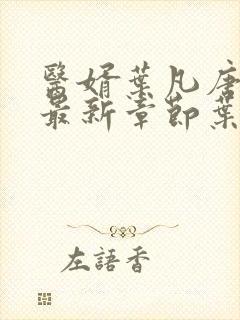 醫婿葉凡唐
最新章節葉
左語香